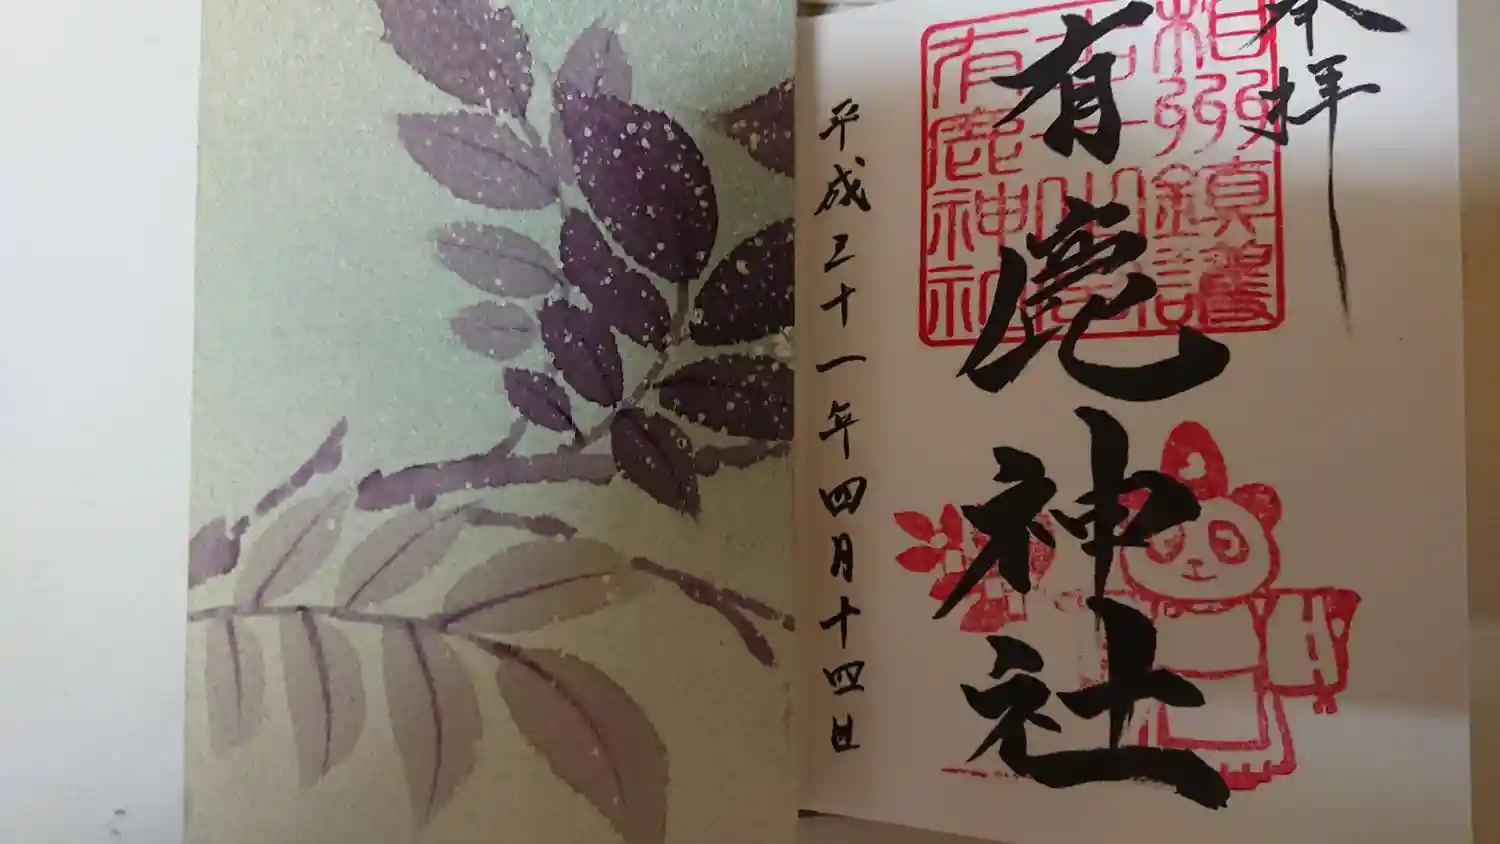 奉拝
有鹿神社
平成三十一年四月十四日
相州鎮護
有鹿神社